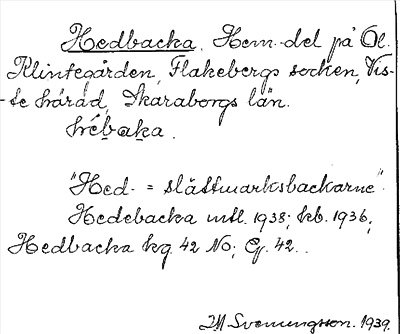 Hedbacka. Hem.-del på Öl.
Klintegården, Flakebergs socken, Vis-
te härad, Skaraborgs län.
hé̀baka.
"Hed- = slättmarksbackarne".
Hedebacka mtl. 1938; kb. 1936;
Hedbacka kg. 42 No; Gj. 42.
I M Svenungsson. 1939.